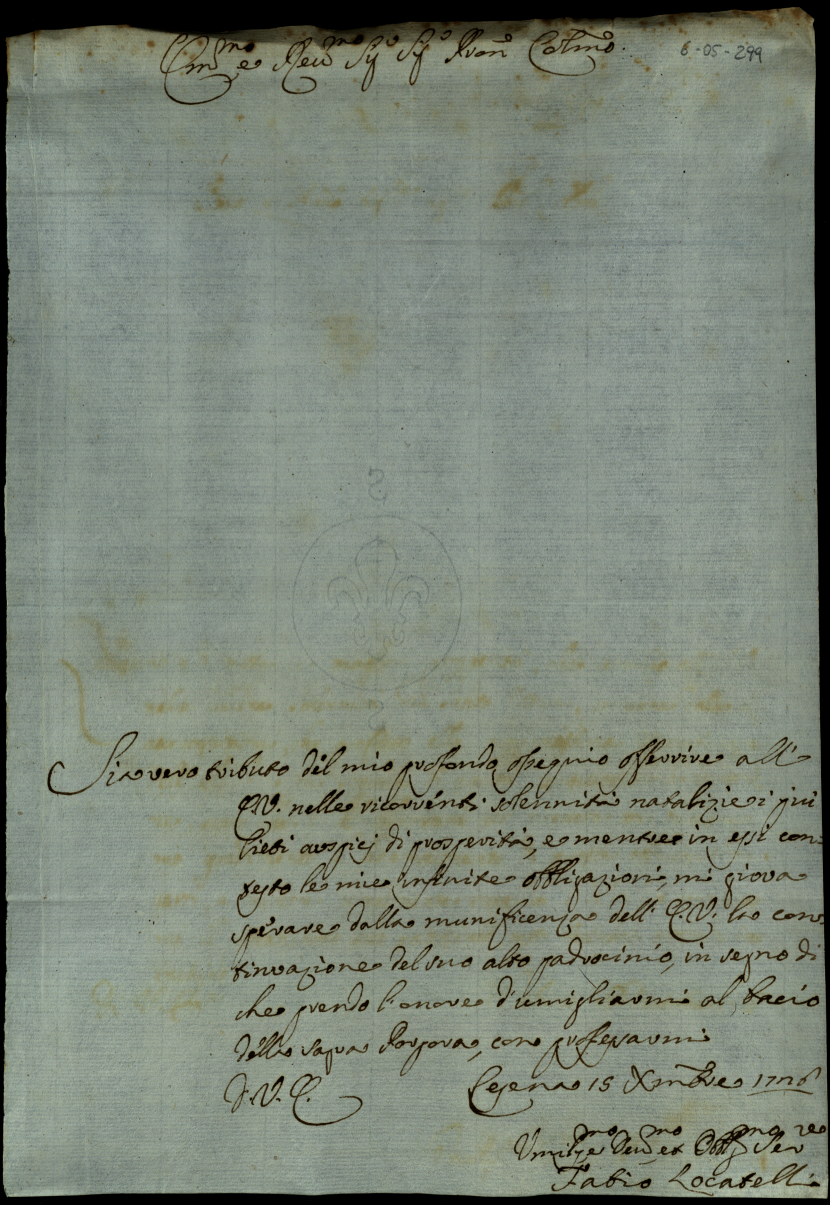 Em.mo e Rev.mo Sig.r Sig.r Pron Colmo
6-05-299
Sia vero tributo del mio profondo ossequio offerire all'
E.V. nelle ricorrenti solennità natalizie i piú
lieti auspicj di prosperità, e mentre in essi con-
testo le mie infinite obbligazioni, mi giova
sperare dalla munificenza dell' E.V. la con-
tinuazione del suo alto padrocinio, in segno di
che prendo l'onore d'umigliarmi al bacio
della sagra Porpora, con professarmi
D.V.E. Cesena 15 Xmbre 1726
Umil.mo Dev.mo et Obb.mo Ser.re
Fabio Locatelli